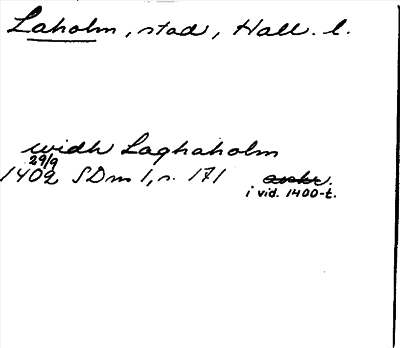 Laholm, stad, Hall. l.
widh Laghaholm
29/9
1402 SDm 1, s. 171 avskr.
i vid. 1400-t.